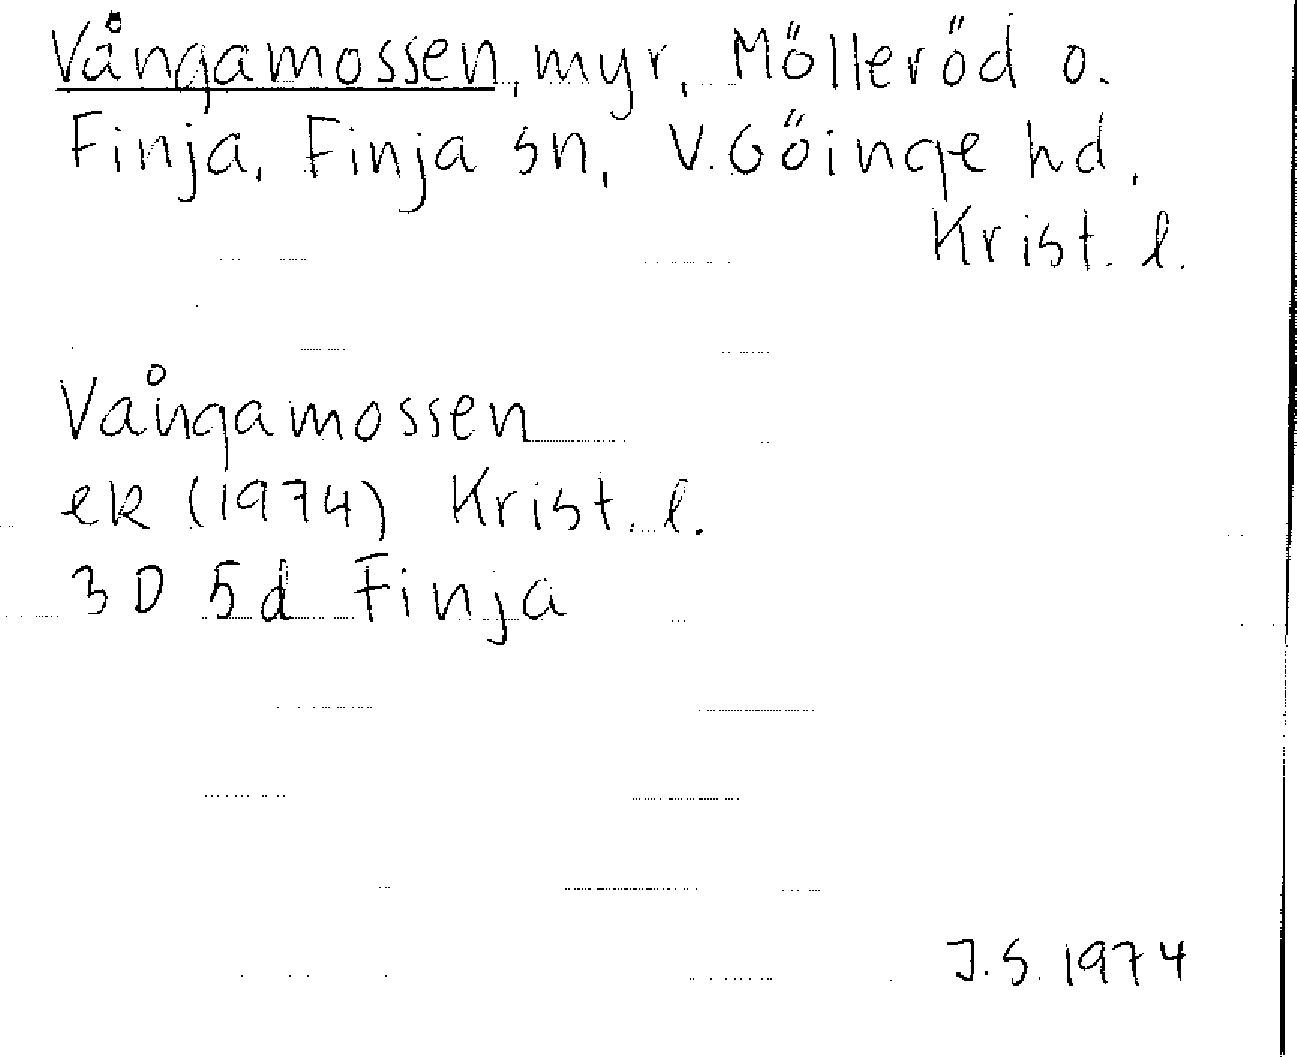 Vångamossen, myr, Mölleröd o.
Finja, Finja sn, V.Göinge hd,
Krist. l.
Vångamossen
ek (1974) Krist. l.
3D 5d Finja
J.S. 1974